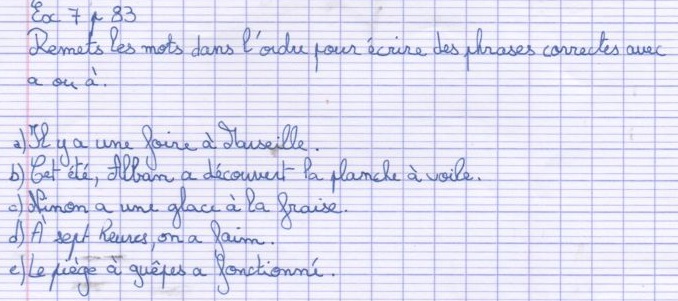 Ex 7 p 83
Remets les mots dans l'ordre pour écrire des phrases correctes avec
a ou à.
a) Il y a une foire à Marseille.
b) Cet été, Alban a découvert la planche à voile.
c) Ninon a une glace à la fraise.
d) À sept heures, on a faim.
e) Le piège à guêpes a fonctionné.